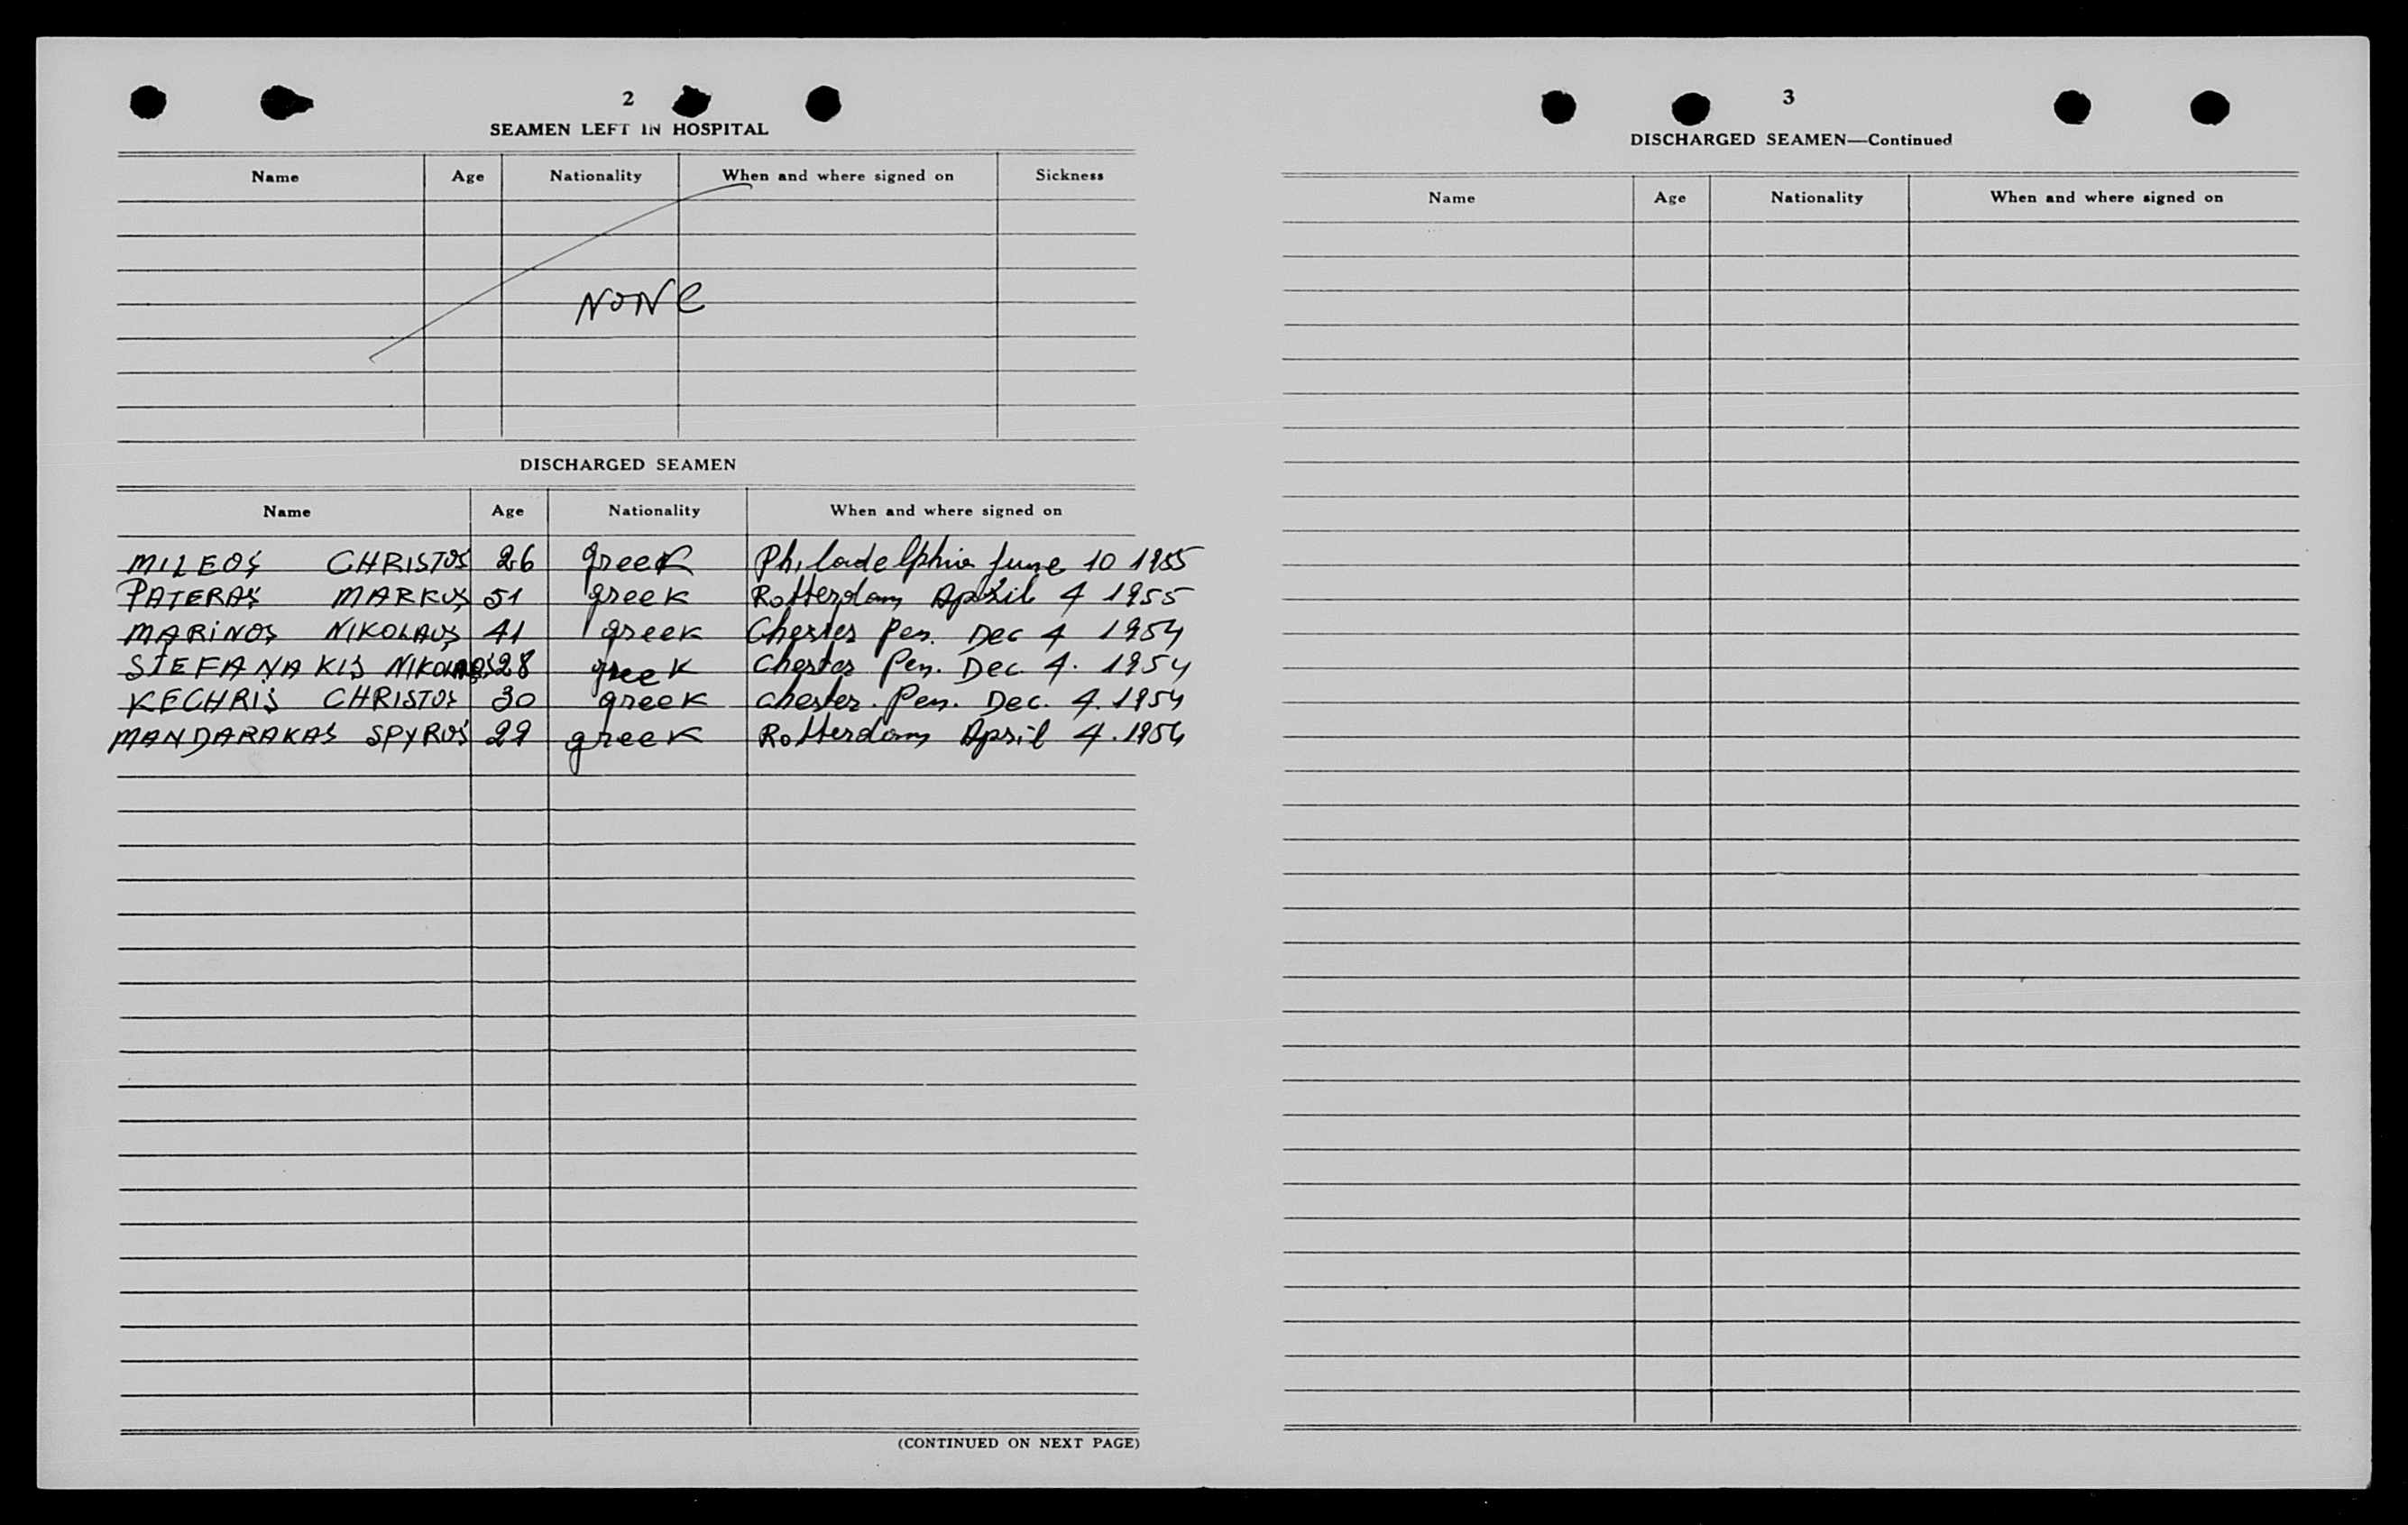 2
SEAMEN LEFT IN HOSPITAL
Name Age Nationality When and where signed on Sickness
NONE
DISCHARGED SEAMEN
Name Age Nationality When and where signed on
MILEOS CHRISTOS 26 greek Philadelphia June 10 1955
PATERAS MARKUS 51 greek Rotterdam April 4 1955
MARINOS NIKOLAUS 41 greek Chester Pen. Dec 4 1954
STEFANAKIS NIKOLAOS 28 greek Chester Pen. Dec. 4. 1954
KECHRIS CHRISTOS 30 greek chester. Pen. Dec. 4. 1954
MANDARAKAS SPYROS 29 greek Rotterdam April 4. 1954
(CONTINUED ON NEXT PAGE)
3
DISCHARGED SEAMEN—Continued
Name Age Nationality When and where signed on